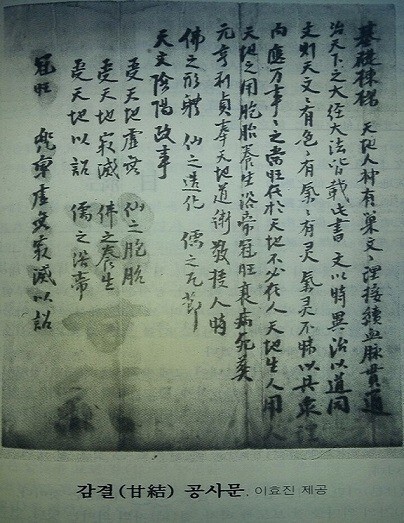 基礎棟樑 天地人神有巢文〻理接續血脉貫通
治天下之大経大法皆載此書 文以時異治以道同
文則天文〻有色〻有氣〻有灵氣灵不昧以具衆理
而應万事〻之當旺在於天地不必在人天地生人用人
天地之用胞胎養生浴帶冠旺衰病死葬
元亨利貞奉天地道術敬授人時
佛之形體 仙之造化 儒之凡節
天文陰陽政事
受天地虛無 仙之胞胎
受天地寂滅 佛之養生
受天地以詔 儒之浴帶
冠旺 兜率虛無寂滅以詔
감결(甘結) 공사문. 이효진 제공